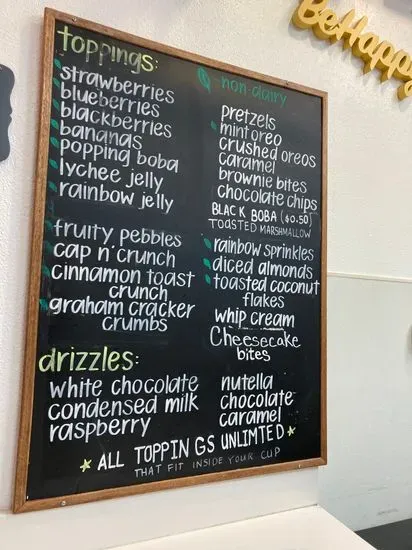 BeHappy
toppings:
-non dairy
strawberries
blueberries
blackberries
bananas
popping boba
lychee jelly
rainbow jelly
fruity pebbles
cap n' crunch
cinnamon toast
crunch
graham cracker
crumbs
pretzels
mint oreo
crushed oreos
caramel
brownie bites
chocolate chips
BLACK BOBA ($0.50)
TOASTED MARSHMALLOW
rainbow sprinkles
diced almonds
toasted coconut
flakes
whip cream
Cheesecake
bites
drizzles:
white chocolate
condensed milk
raspberry
nutella
chocolate
caramel
ALL TOPPINGS UNLIMTED
THAT FIT INSIDE YOUR CUP